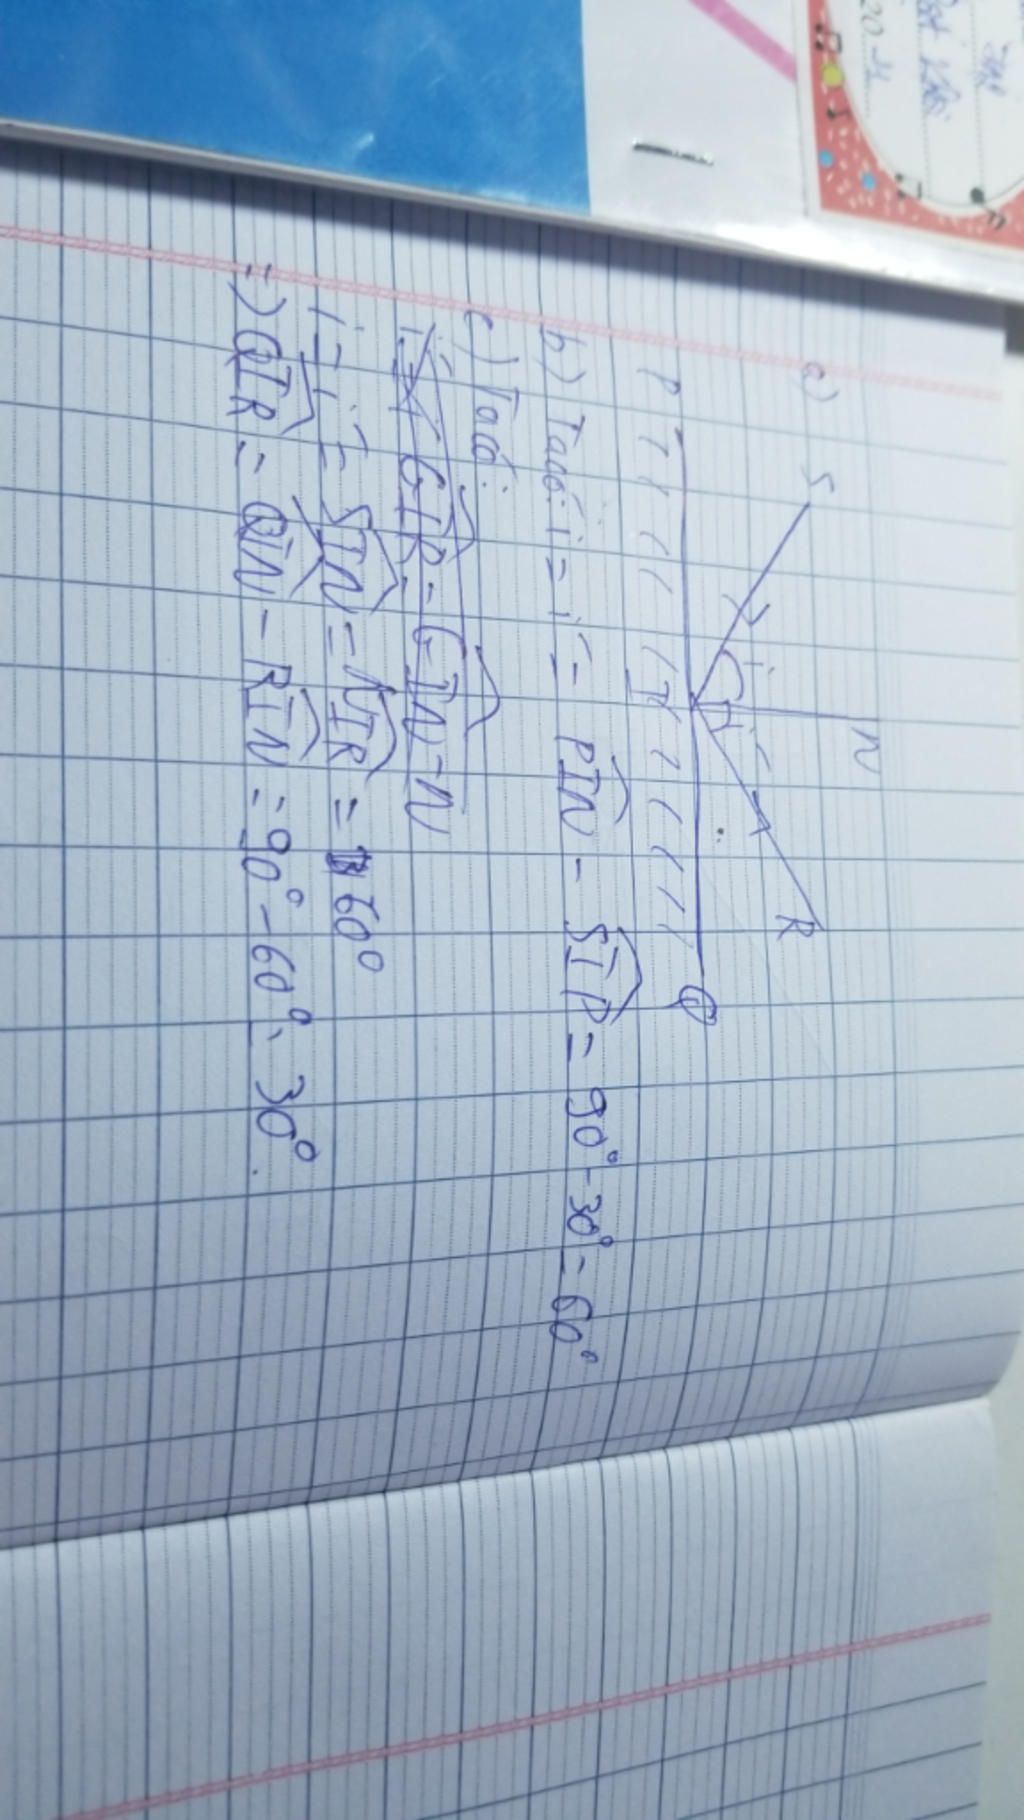 a) S N R
i i'
P I Q
b) Ta có: i = i' = PIN - SIP = 90° - 30° = 60°
c) Ta có:
i = i' = SIN = NIR = 60°
=) QIR = QIN - RIN = 90° - 60° = 30°.